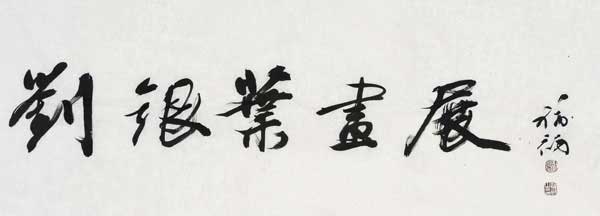 劉銀葉畫展